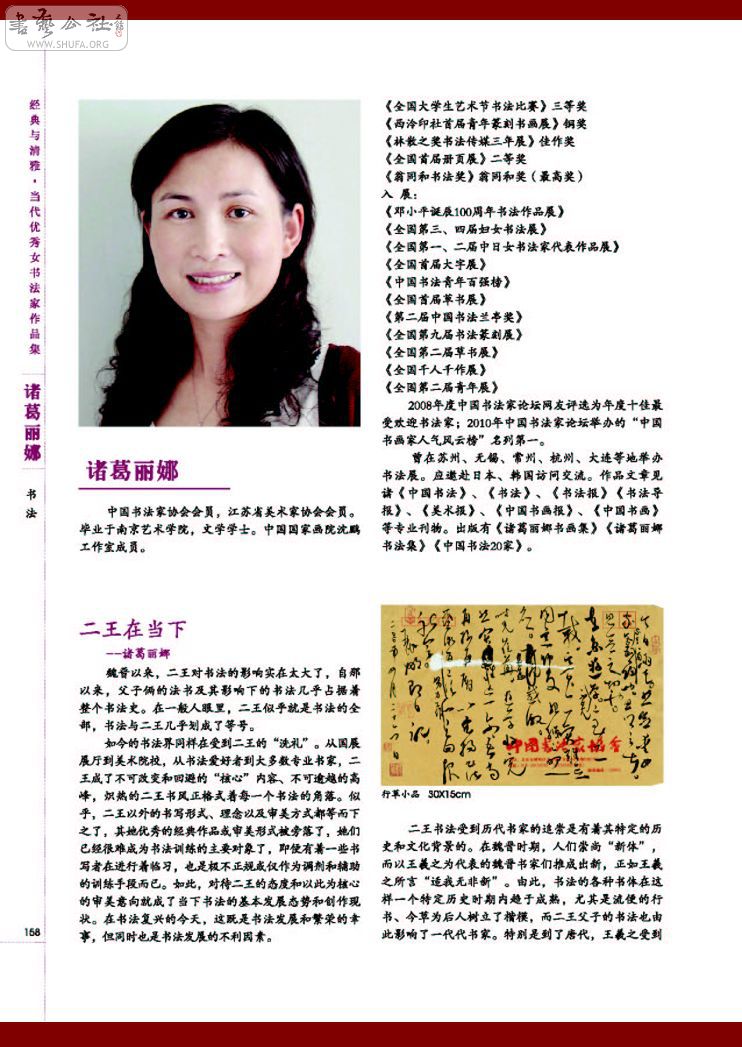 書藝公社
WWW.SHUFA.ORG
经典与清雅·当代优秀女书法家作品集
诸葛丽娜
书法
诸葛丽娜
中国书法家协会会员，江苏省美术家协会会员。
毕业于南京艺术学院，文学学士。中国国家画院沈鹏
工作室成员。
《全国大学生艺术节书法比赛》三等奖
《西泠印社首届青年篆刻书画展》铜奖
《林散之奖书法传媒三年展》佳作奖
《全国首届册页展》二等奖
《翁同和书法奖》翁同和奖（最高奖）
入 展：
《邓小平诞辰100周年书法作品展》
《全国第三、四届妇女书法展》
《全国第一、二届中日女书法家代表作品展》
《全国首届大字展》
《中国书法青年百强榜》
《全国首届草书展》
《第二届中国书法兰亭奖》
《全国第九届书法篆刻展》
《全国第二届草书展》
《全国千人千作展》
《全国第二届青年展》
2008年度中国书法家论坛网友评选为年度十佳最
受欢迎书法家；2010年中国书法家论坛举办的“中国
书画家人气风云榜”名列第一。
曾在苏州、无锡、常州、杭州、大连等地举办
书法展。应邀赴日本、韩国访问交流。作品文章见
诸《中国书法》、《书法》、《书法报》《书法导
报》、《美术报》、《中国书画报》、《中国书画》
等专业刊物。出版有《诸葛丽娜书画集》《诸葛丽娜
书法集》《中国书法20家》。
二王在当下
--诸葛丽娜
魏晋以来，二王对书法的影响实在太大了，自那
以来，父子俩的法书及其影响下的书法几乎占据着
整个书法史。在一般人眼里，二王似乎就是书法的全
部，书法与二王几乎划成了等号。
如今的书法界同样在受到二王的“洗礼”。从国展
展厅到美术院校，从书法爱好者到大多数专业书家，二
王成了不可改变和回避的“核心”内容、不可逾越的高
峰，炽热的二王书风正格式着每一个书法的角落。似
乎，二王以外的书写形式、理念以及审美方式都等而下
之了，其她优秀的经典作品或审美形式被旁落了，她们
已经很难成为书法训练的主要对象了，即使有着一些书
写者在进行着临习，也是极不正规或仅作为调剂和辅助
的训练手段而已。如此，对待二王的态度和以此为核心
的审美意向就成了当下书法的基本发展态势和创作现
状。在书法复兴的今天，这既是书法发展和繁荣的幸
事，但同时也是书法发展的不利因素。
中国书法家协会
行草小品 30X15cm
二王书法受到历代书家的追崇是有着其特定的历
史和文化背景的。在魏晋时期，人们崇尚“新体”，
而以王羲之为代表的魏晋书家们推成出新，正如王羲
之所言“适我无非新”。由此，书法的各种书体在这
样一个特定历史时期内趋于成熟，尤其是流便的行
书、今草为后人树立了楷模，而二王父子的书法也由
此影响了一代代书家。特别是到了唐代，王羲之受到
158